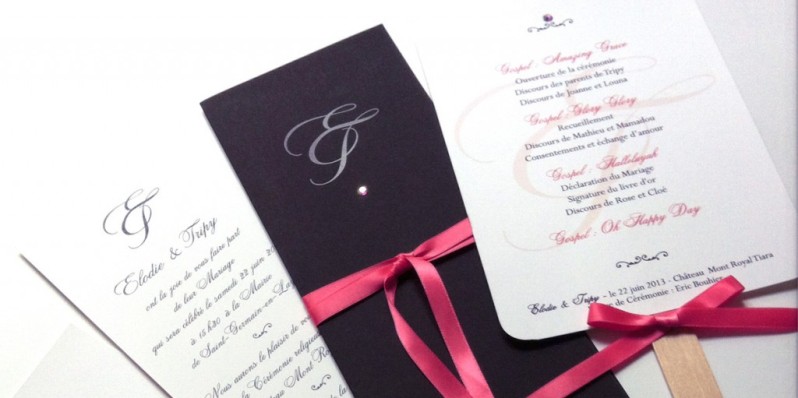 &
Elodie & Tripy
ont la joie de vous faire part
de leur Mariage
qui sera célébré le samedi 22 juin 20
à 15 h30 à la Mairie
de Saint-Germain-en-La
Nous aurons le plaisir de vo
la Cérémonie religieu
Mont Ro
&
Gospel : Amazing Grace
Ouverture de la cérémonie
Discours des parents de Tripy
Discours de Joanne et Louna
Gospel : Glory Glory
Recueillement
Discours de Mathieu et Mamadou
Consentements et échange d'amour
Gospel : Halleluyah
Déclaration du Mariage
Signature du livre d'or
Discours de Rose et Cloé
Gospel : Oh Happy Day
Elodie & Tripy - le 22 juin 2013 - Château Mont Royal Tiara
de Cérémonie : Eric Bouhier